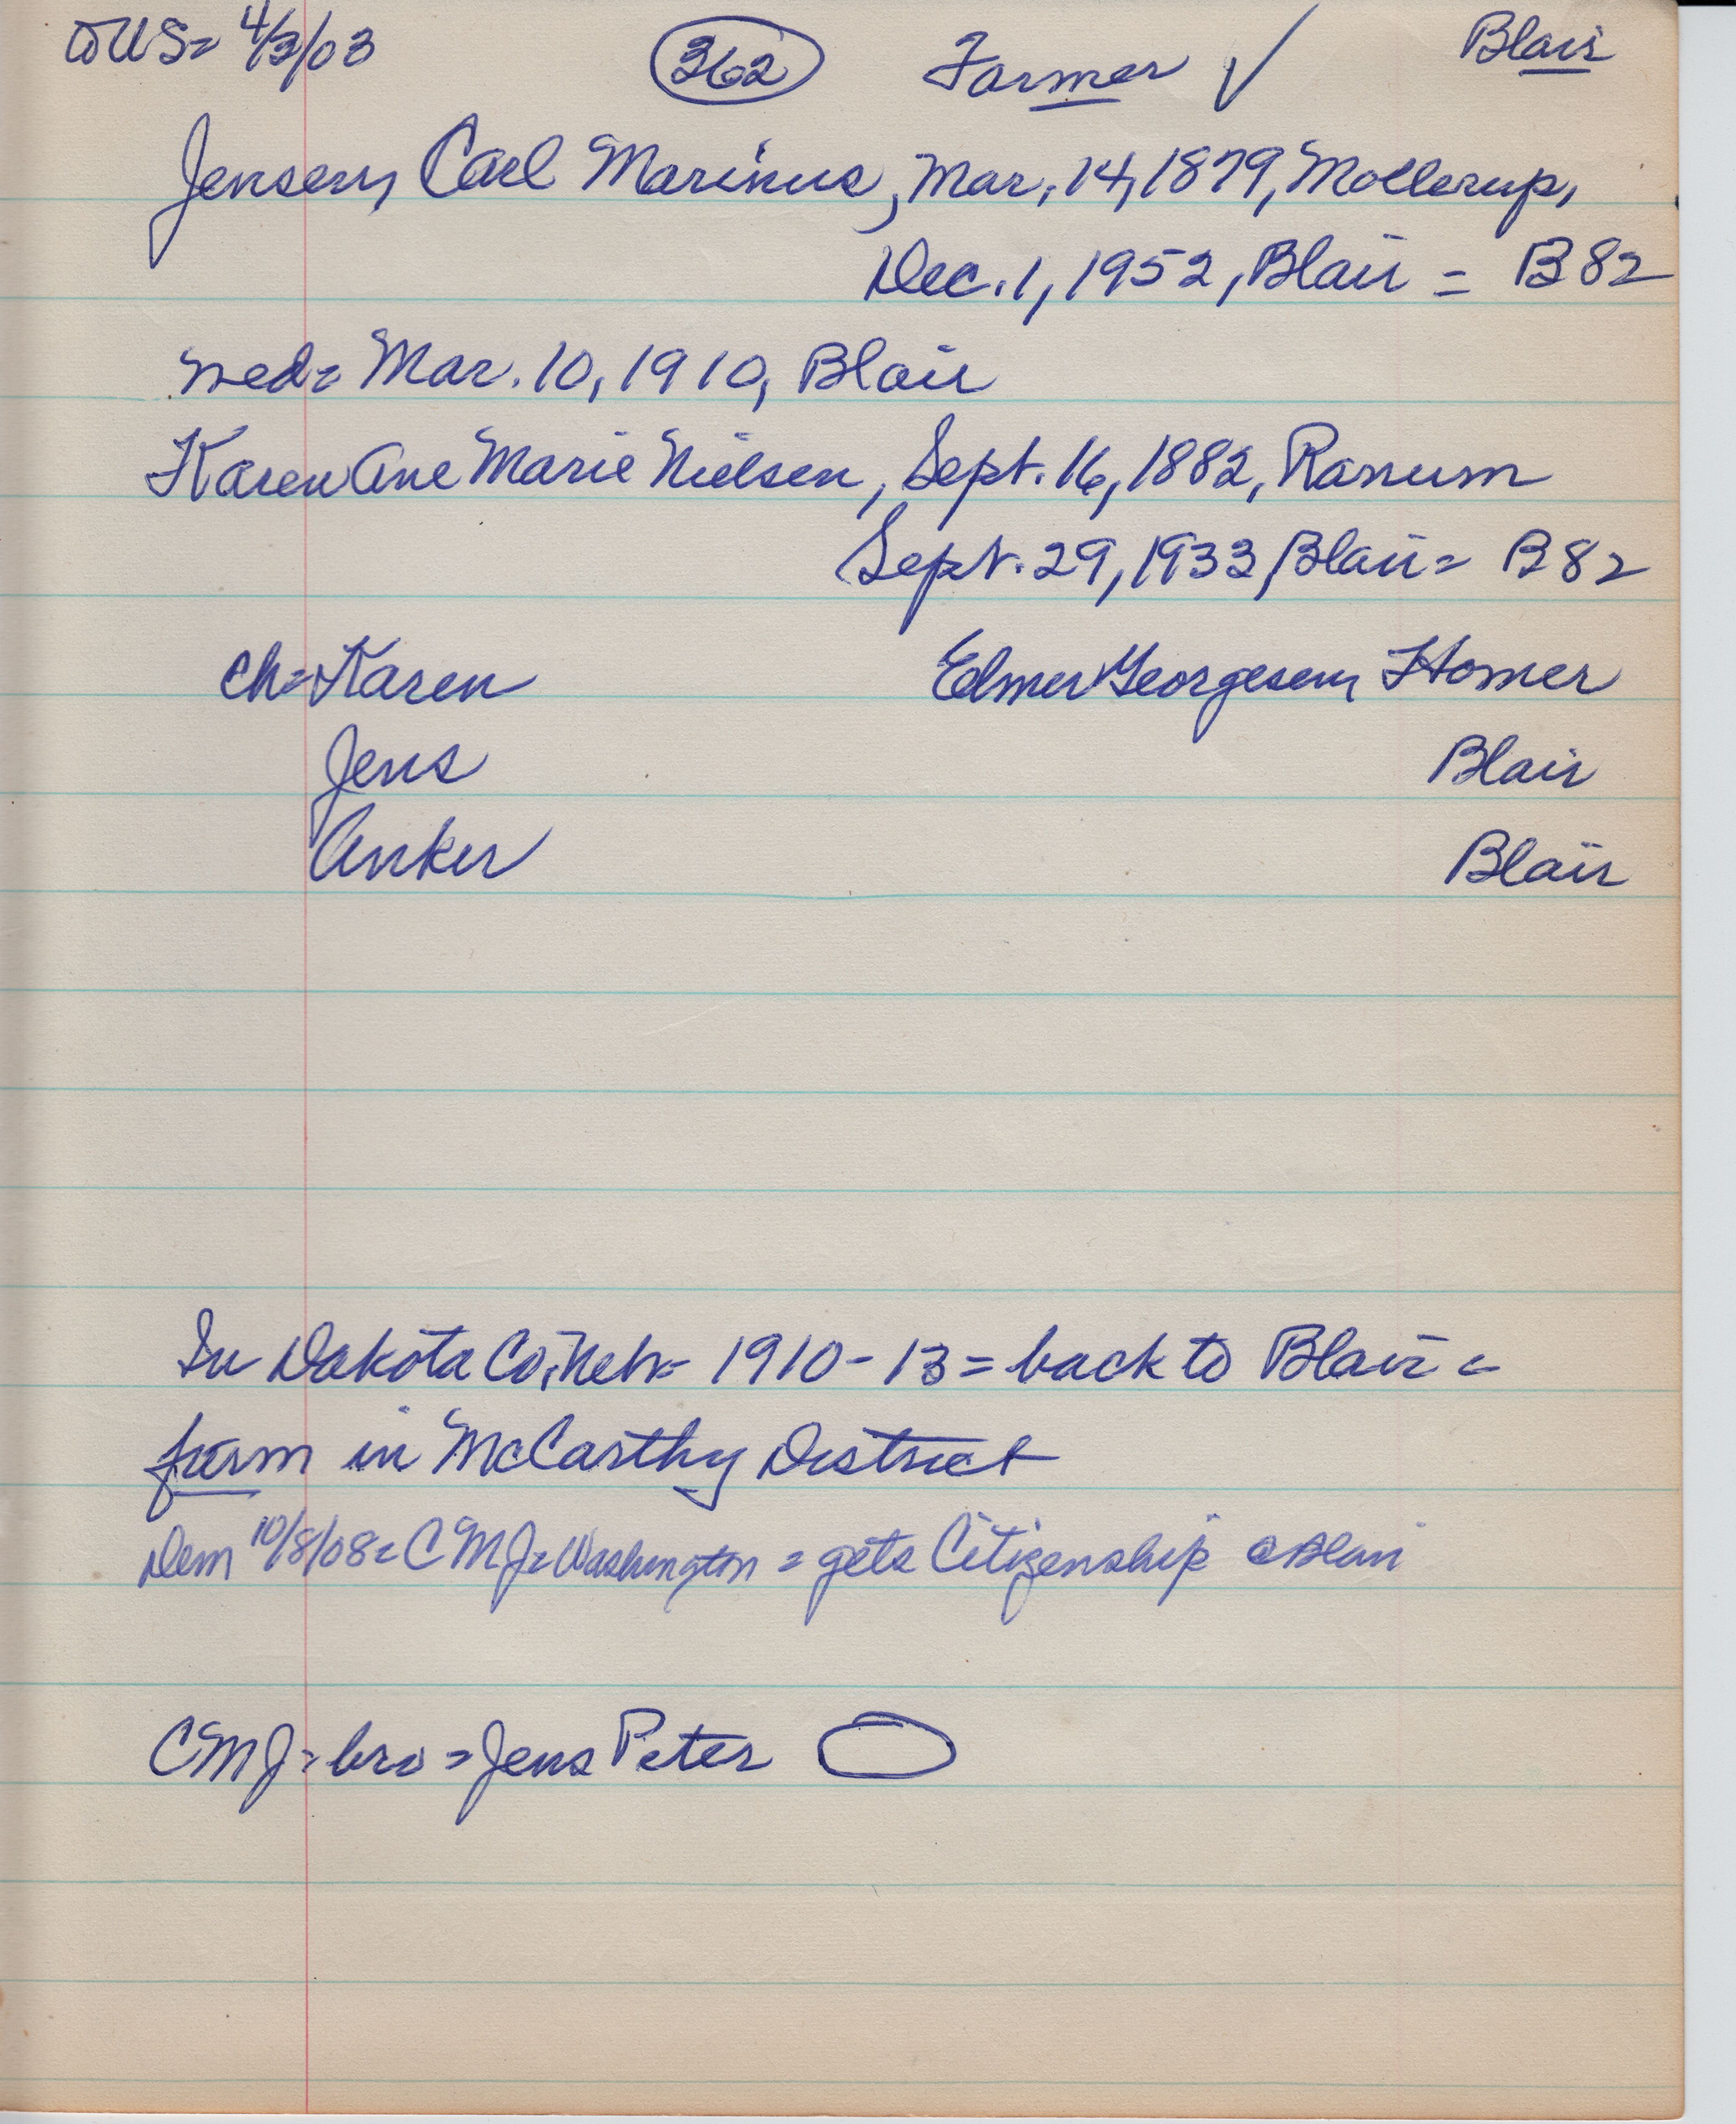 to US = 4/3/03 362 Farmer ✓ Blair
Jensen, Carl Marinus, Mar. 14, 1879, Mollerup,
Dec. 1, 1952, Blair = B 82
wed = Mar. 10, 1910, Blair
Karen Ane Marie Nielsen, Sept. 16, 1882, Ranum
Sept. 29, 1933, Blair = B 82
ch = Karen Elmer Georgesen, Homer
Jens Blair
Anker Blair
In Dakota Co. Neb = 1910 - 13 = back to Blair =
farm in McCarthy District
Dem 10/8/08 = CMJ = Washington = gets Citizenship @ Blair
CMJ = bro = Jens Peter